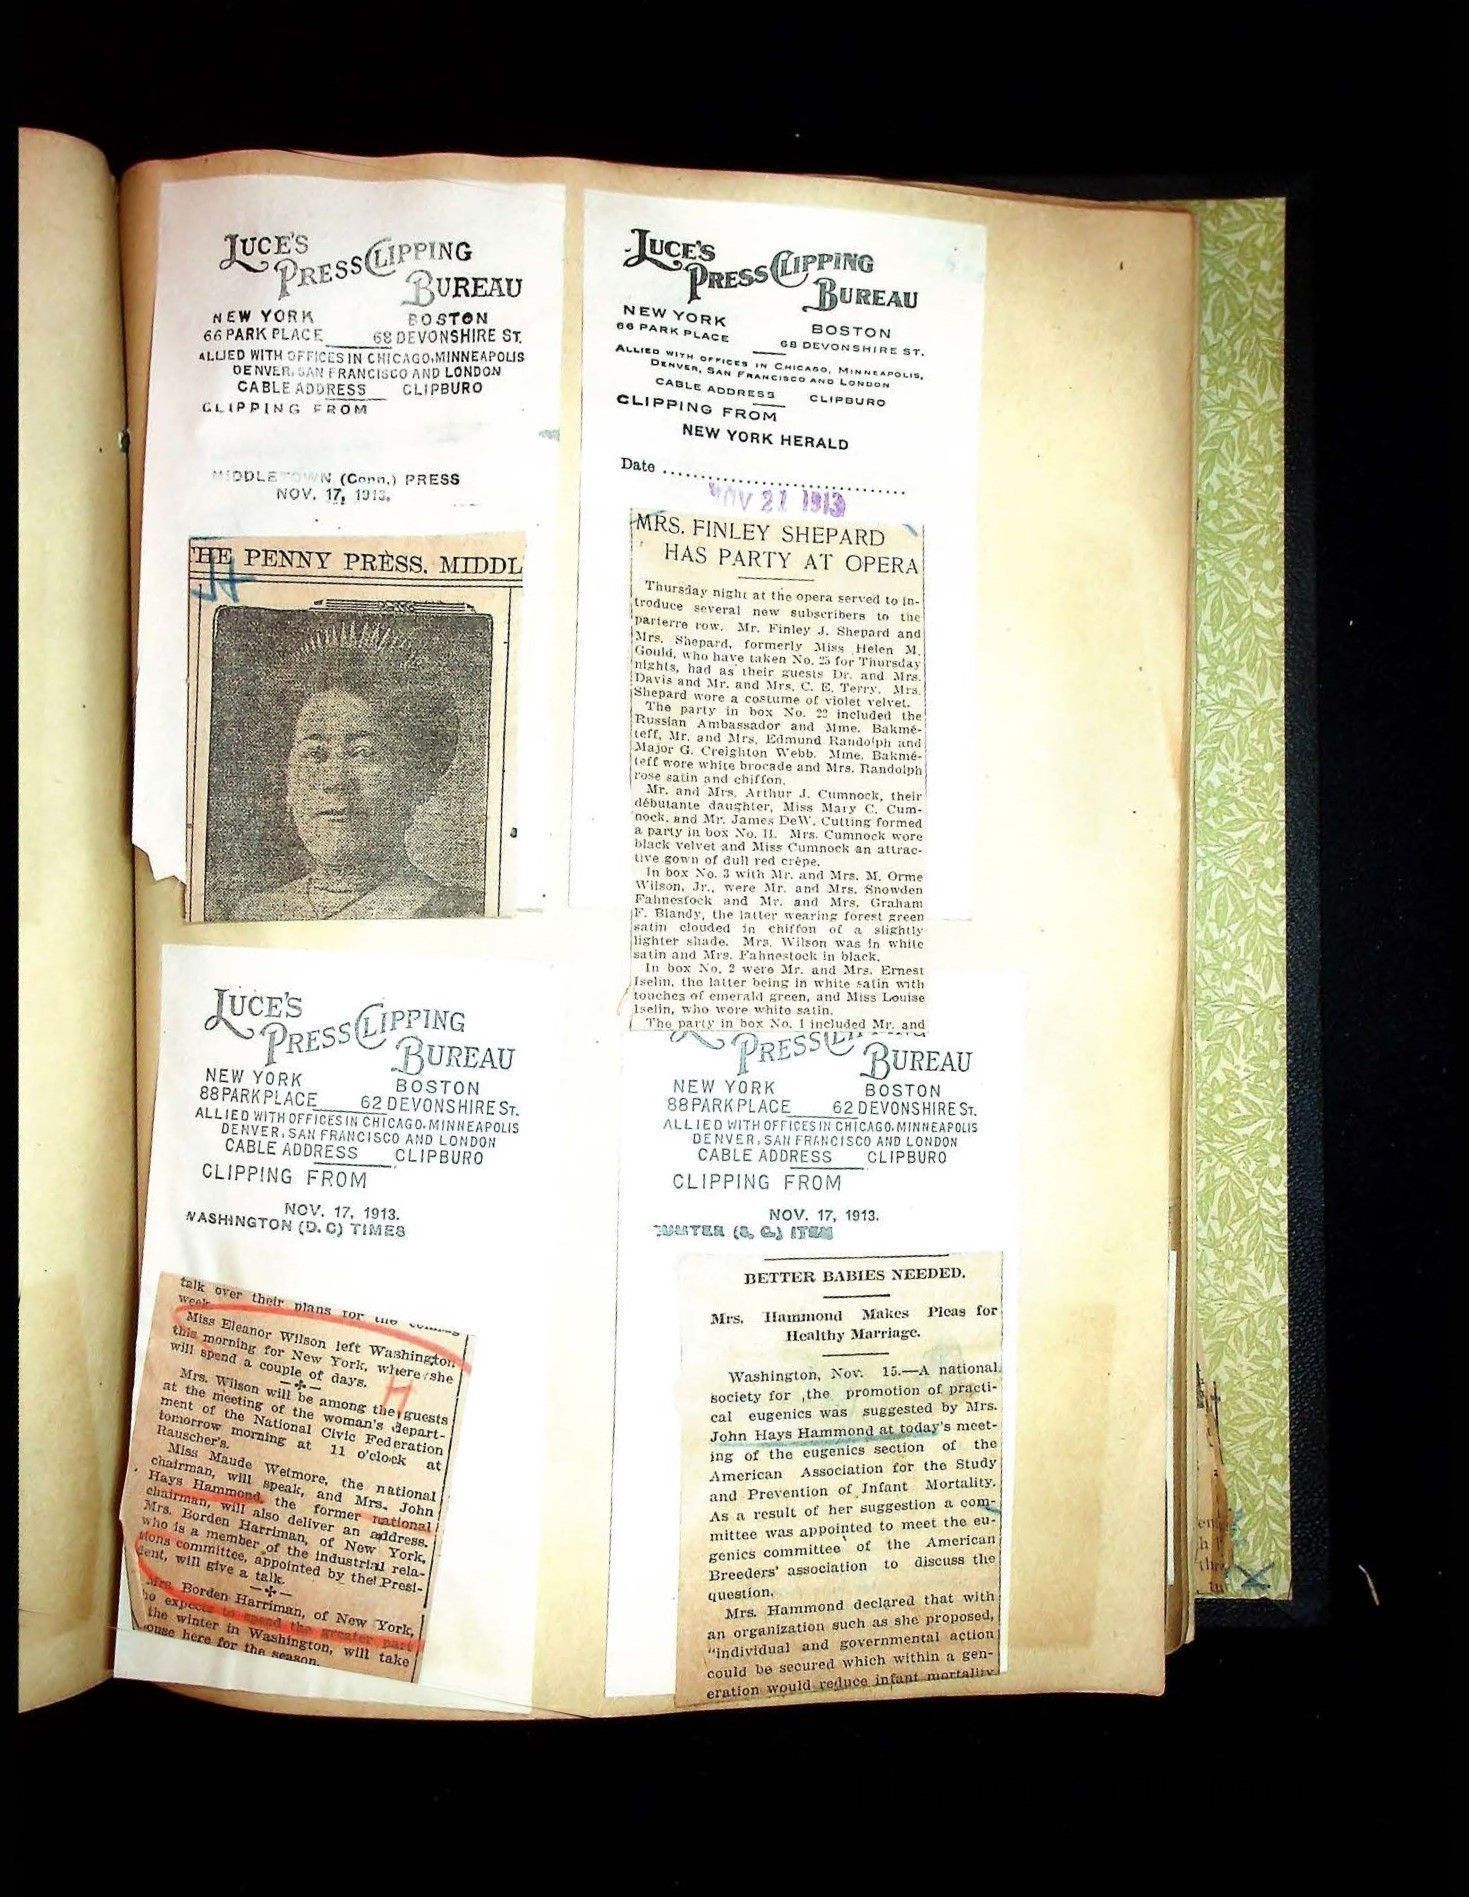 LUCE'S
PRESS CLIPPING
BUREAU
NEW YORK BOSTON
66 PARK PLACE 68 DEVONSHIRE ST.
ALLIED WITH OFFICES IN CHICAGO, MINNEAPOLIS
DENVER, SAN FRANCISCO AND LONDON
CABLE ADDRESS CLIPBURO
CLIPPING FROM
MIDDLETOWN (Conn.) PRESS
NOV. 17, 1913.
HE PENNY PRESS, MIDDL
LUCE'S
PRESS CLIPPING
BUREAU
NEW YORK BOSTON
66 PARK PLACE 68 DEVONSHIRE ST.
ALLIED WITH OFFICES IN CHICAGO, MINNEAPOLIS,
DENVER, SAN FRANCISCO AND LONDON
CABLE ADDRESS CLIPBURO
CLIPPING FROM
NEW YORK HERALD
Date
NOV 21 1913
MRS. FINLEY SHEPARD
HAS PARTY AT OPERA
Thursday night at the opera served to in-
troduce several new subscribers to the
parterre row. Mr. Finley J. Shepard and
Mrs. Shepard, formerly Miss Helen M.
Gould, who have taken No. 25 for Thursday
nights, had as their guests Dr. and Mrs.
Davis and Mr. and Mrs. C. E. Terry. Mrs.
Shepard wore a costume of violet velvet.
The party in box No. 22 included the
Russian Ambassador and Mme. Bakmé-
teff, Mr. and Mrs. Edmund Randolph and
Major G. Creighton Webb. Mme. Bakmé-
teff wore white brocade and Mrs. Randolph
rose satin and chiffon.
Mr. and Mrs. Arthur J. Cumnock, their
débutante daughter, Miss Mary C. Cum-
nock, and Mr. James DeW. Cutting formed
a party in box No. 11. Mrs. Cumnock wore
black velvet and Miss Cumnock an attrac-
tive gown of dull red crêpe.
In box No. 3 with Mr. and Mrs. M. Orme
Wilson, Jr., were Mr. and Mrs. Snowden
Fahnestock and Mr. and Mrs. Graham
F. Blandy, the latter wearing forest green
satin clouded in chiffon of a slightly
lighter shade. Mrs. Wilson was in white
satin and Mrs. Fahnestock in black.
In box No. 2 were Mr. and Mrs. Ernest
Iselin, the latter being in white satin with
touches of emerald green, and Miss Louise
Iselin, who wore white satin.
The party in box No. 1 included Mr. and
LUCE'S
PRESS CLIPPING
BUREAU
NEW YORK BOSTON
88 PARK PLACE 62 DEVONSHIRE ST.
ALLIED WITH OFFICES IN CHICAGO, MINNEAPOLIS
DENVER, SAN FRANCISCO AND LONDON
CABLE ADDRESS CLIPBURO
CLIPPING FROM
NOV. 17, 1913.
WASHINGTON (D. C) TIMES
talk over their plans for the coming
week.
Miss Eleanor Wilson left Washington
this morning for New York, where she
will spend a couple of days.
Mrs. Wilson will be among the guests
at the meeting of the woman's depart-
ment of the National Civic Federation
tomorrow morning at 11 o'clock at
Rauscher's.
Miss Maude Wetmore, the national
chairman, will speak, and Mrs. John
Hays Hammond, the former national
chairman, will also deliver an address.
Mrs. Borden Harriman, of New York,
who is a member of the industrial rela-
tions committee, appointed by the Presi-
dent, will give a talk.
Mrs. Borden Harriman, of New York,
ho expects to spend the greater part
the winter in Washington, will take
ouse here for the season.
PRESS CLIPPING
BUREAU
NEW YORK BOSTON
88 PARK PLACE 62 DEVONSHIRE ST.
ALLIED WITH OFFICES IN CHICAGO, MINNEAPOLIS
DENVER, SAN FRANCISCO AND LONDON
CABLE ADDRESS CLIPBURO
CLIPPING FROM
NOV. 17, 1913.
SUMTER (S. C.) ITEM
BETTER BABIES NEEDED.
Mrs. Hammond Makes Pleas for
Healthy Marriage.
Washington, Nov. 15.—A national
society for the promotion of practi-
cal eugenics was suggested by Mrs.
John Hays Hammond at today's meet-
ing of the eugenics section of the
American Association for the Study
and Prevention of Infant Mortality.
As a result of her suggestion a com-
mittee was appointed to meet the eu-
genics committee of the American
Breeders' association to discuss the
question.
Mrs. Hammond declared that with
an organization such as she proposed,
"individual and governmental action
could be secured which within a gen-
eration would reduce infant mortality